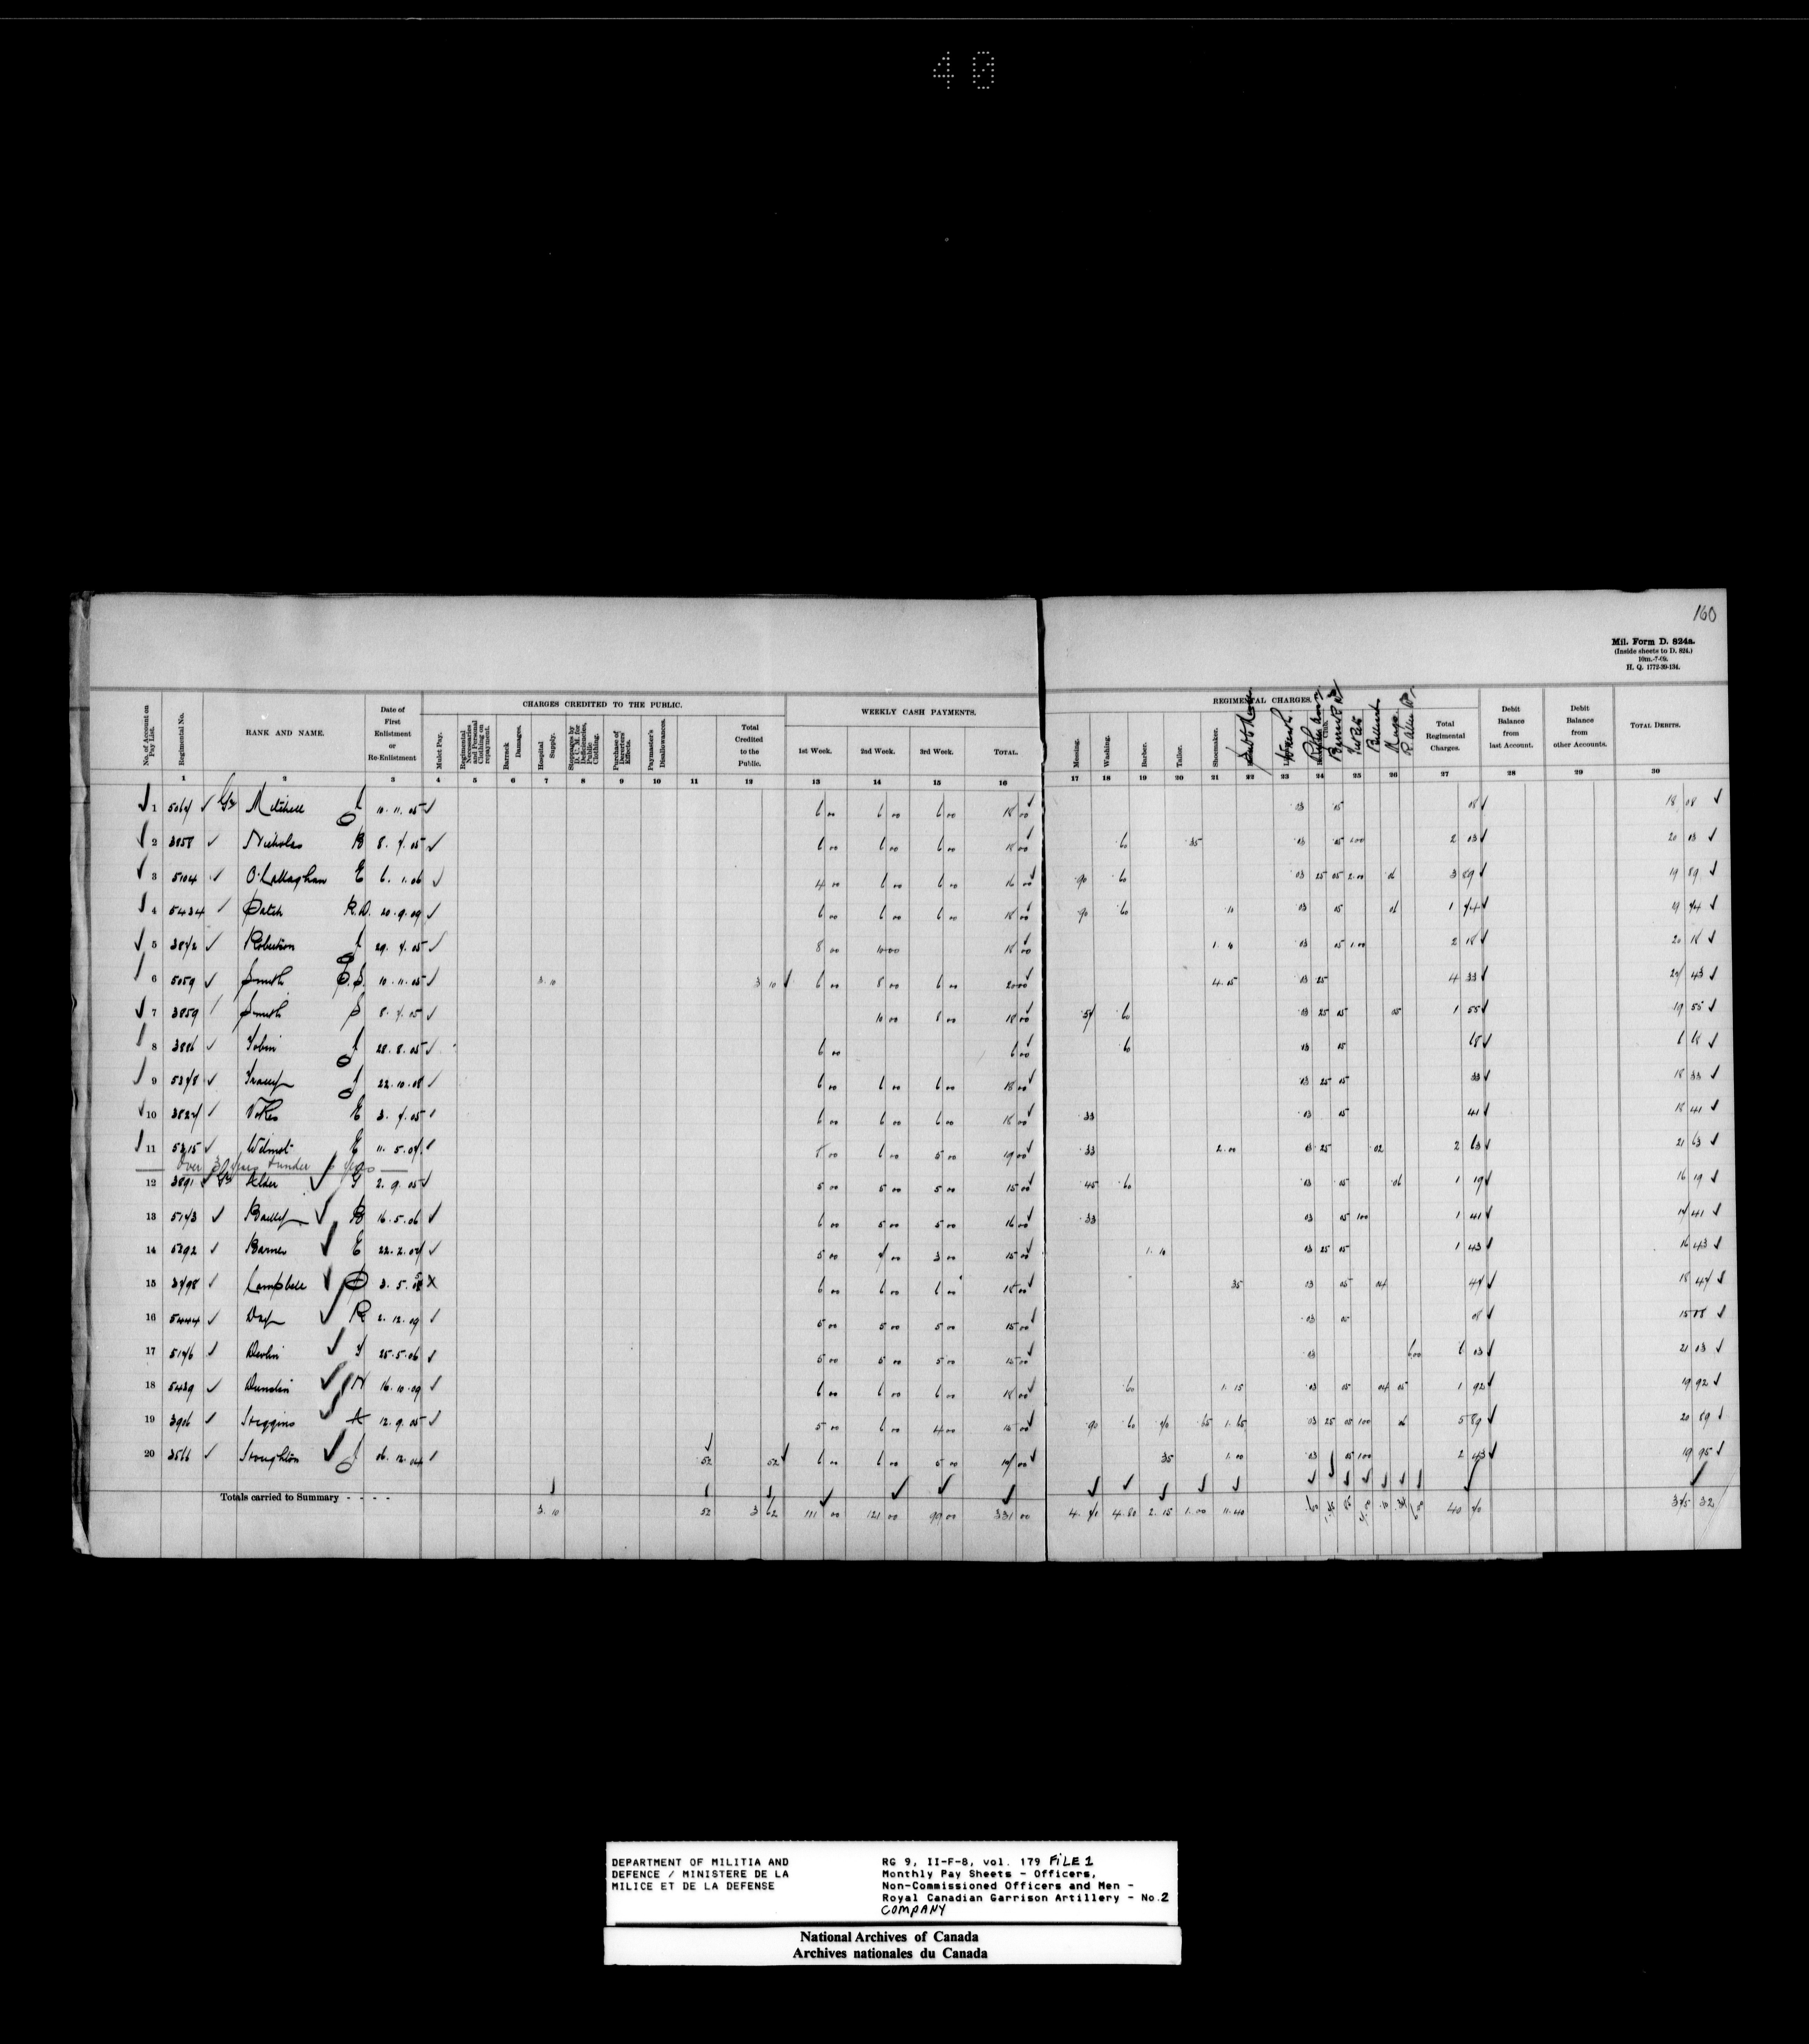 40
160
Mil. Form D. 824a.
(Inside sheets to D. 824.)
10m.-7-09.
H. Q. 1772-39-134.
CHARGES CREDITED TO THE PUBLIC.
WEEKLY CASH PAYMENTS.
REGIMENTAL CHARGES.
No. of Account on Pay List.
Regimental No.
RANK AND NAME.
Date of First Enlistment or Re-Enlistment
Mulct Pay.
Regimental Necessaries and Personal Clothing on repayment.
Barrack Damages.
Hospital Supply.
Stoppages by D. C. M. for Deficiencies, Public Clothing.
Purchase of Deserters' Effects.
Paymaster's Disallowances.
Total Credited to the Public.
1st Week.
2nd Week.
3rd Week.
TOTAL.
Messing.
Washing.
Barber.
Tailor.
Shoemaker.
Total Regimental Charges.
Debit Balance from last Account.
Debit Balance from other Accounts.
TOTAL DEBITS.
1 2 3 4 5 6 7 8 9 10 11 12 13 14 15 16 17 18 19 20 21 22 23 24 25 26 27 28 29 30
1 Gr Mitchell J 10.11.05 6 00 6 00 6 00 18 00 03 05 08 18 08
2 3858 Nicholas B 8.7.05 6 00 6 00 6 00 18 00 60 35 03 05 1 00 2 03 20 03
3 5104 O'Callaghan E 6.1.06 4 00 6 00 6 00 16 00 90 60 03 25 05 2 00 06 3 89 19 89
4 5434 Patch R.D. 20.9.09 6 00 6 00 6 00 18 00 90 60 10 03 05 06 1 74 19 74
5 3872 Robertson J 29.7.05 8 00 10 00 18 00 1 10 03 05 1 00 2 18 20 18
6 5059 Smith 10.11.05 3 10 3 10 6 00 8 00 6 00 20 00 4 05 03 25 4 33 27 43
7 3859 Smith S 8.7.05 10 00 8 00 18 00 57 60 03 25 05 05 1 55 19 55
8 3886 Tobin J 28.8.05 6 00 6 00 60 03 05 68 6 68
9 5378 Tracey J 22.10.08 6 00 6 00 6 00 18 00 03 25 05 33 18 33
10 3827 Vokes E 3.7.05 6 00 6 00 6 00 18 00 33 03 05 41 18 41
11 5315 Wilmot E 11.5.07 8 00 6 00 5 00 19 00 33 2 00 03 25 02 2 63 21 63
Over 3 years & under 6 years
12 3891 Gr Alder G 2.9.05 5 00 5 00 5 00 15 00 45 60 03 05 06 1 19 16 19
13 5173 Bailey B 16.5.06 6 00 5 00 5 00 16 00 33 03 05 1 00 1 41 17 41
14 5292 Barnes E 22.2.07 5 00 7 00 3 00 15 00 1 10 03 25 05 1 43 16 43
15 3798 Campbell 3.5.05 6 00 6 00 6 00 18 00 35 03 05 04 47 18 47
16 5444 Day R 2.12.09 5 00 5 00 5 00 15 00 03 05 08 15 08
17 5176 Devlin 25.5.06 5 00 5 00 5 00 15 00 03 6 00 6 03 21 03
18 5439 16.10.09 6 00 6 00 6 00 18 00 60 1 15 03 05 04 05 1 92 19 92
19 3906 A 12.9.05 5 00 6 00 4 00 15 00 90 60 70 65 1 65 03 25 05 1 00 06 5 89 20 89
20 3566 Stoughton J 06.12.04 52 52 6 00 6 00 5 00 17 00 35 1 00 03 05 1 00 2 43 19 95
Totals carried to Summary - - - - 3 10 52 3 62 111 00 121 00 99 00 331 00 4 70 4 80 2 15 1 00 11 40 40 70 375 32
DEPARTMENT OF MILITIA AND
DEFENCE / MINISTERE DE LA
MILICE ET DE LA DEFENSE
RG 9, II-F-8, vol. 179 FILE 1
Monthly Pay Sheets - Officers,
Non-Commissioned Officers and Men -
Royal Canadian Garrison Artillery - No.2
COMPANY
National Archives of Canada
Archives nationales du Canada